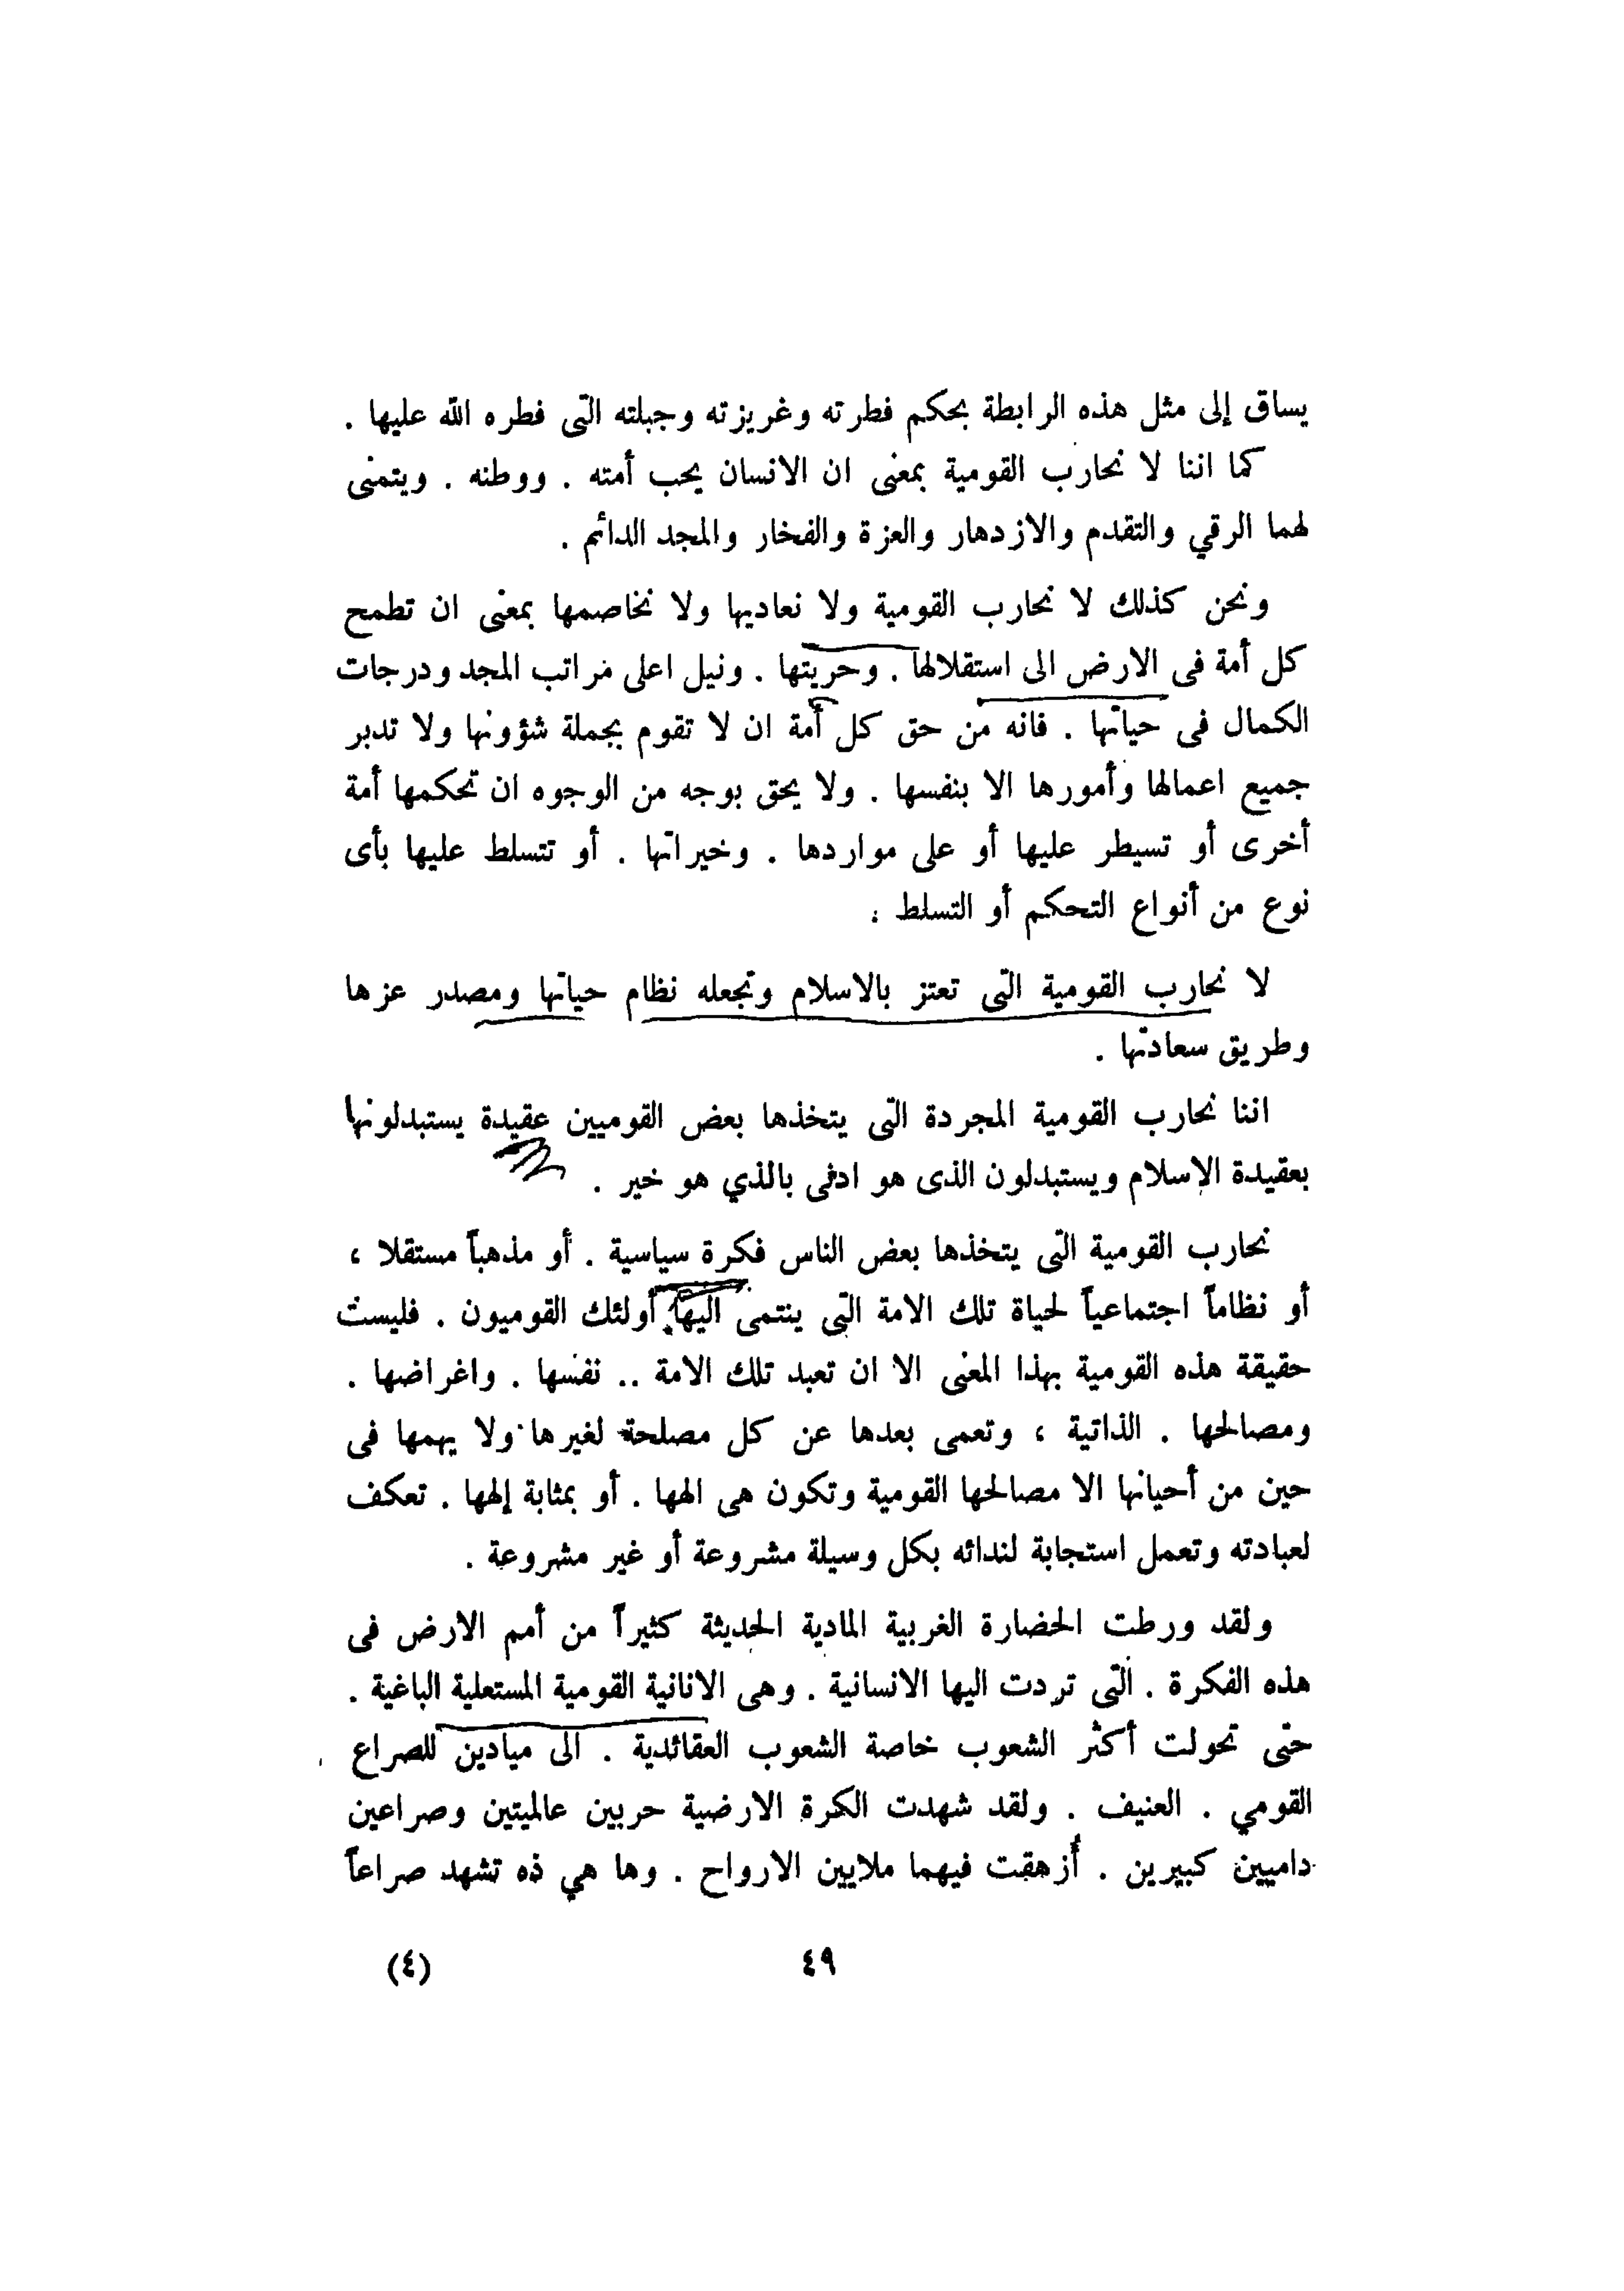 يساق إلى مثل هذه الرابطة بحكم فطرته وغريزته وجبلته التى فطره الله عليها .
كما اننا لا نحارب القومية بمعنى ان الانسان يحب أمته . ووطنه . ويتمنى
لهما الرقي والتقدم والازدهار والعزة والفخار والمجد الدائم .
ونحن كذلك لا نحارب القومية ولا نعاديها ولا نخاصمها بمعنى ان تطمح
كل أمة فى الارض الى استقلالها . وحريتها . ونيل اعلى مراتب المجد ودرجات
الكمال فى حياتها . فانه من حق كل أمة ان لا تقوم بجملة شؤونها ولا تدبر
جميع اعمالها وأمورها الا بنفسها . ولا يحق بوجه من الوجوه ان تحكمها أمة
أخرى أو تسيطر عليها أو على مواردها . وخيراتها . أو تتسلط عليها بأى
نوع من أنواع التحكم أو التسلط .
لا نحارب القومية التى تعتز بالاسلام وتجعله نظام حياتها ومصدر عزها
وطريق سعادتها .
اننا نحارب القومية المجردة التى يتخذها بعض القوميين عقيدة يستبدلونها
بعقيدة الإسلام ويستبدلون الذى هو ادنى بالذي هو خير .
نحارب القومية التى يتخذها بعض الناس فكرة سياسية . أو مذهباً مستقلا ،
أو نظاماً اجتماعياً لحياة تلك الامة التى ينتمى اليها أولئك القوميون . فليست
حقيقة هذه القومية بهذا المعنى الا ان تعبد تلك الامة .. نفسها . واغراضها .
ومصالحها . الذاتية ، وتعمى بعدها عن كل مصلحة لغيرها ولا يهمها فى
حين من أحيانها الا مصالحها القومية وتكون هى الهها . أو بمثابة إلهها . تعكف
لعبادته وتعمل استجابة لندائه بكل وسيلة مشروعة أو غير مشروعة .
ولقد ورطت الحضارة الغربية المادية الحديثة كثيراً من أمم الارض فى
هذه الفكرة . التى تردت اليها الانسانية . وهى الانانية القومية المستعلية الباغية .
حتى تحولت أكثر الشعوب خاصة الشعوب العقائدية . الى ميادين للصراع
القومي . العنيف . ولقد شهدت الكرة الارضية حربين عالميتين وصراعين
داميين كبيرين . أزهقت فيهما ملايين الارواح . وها هي ذه تشهد صراعاً
٤٩
(٤)